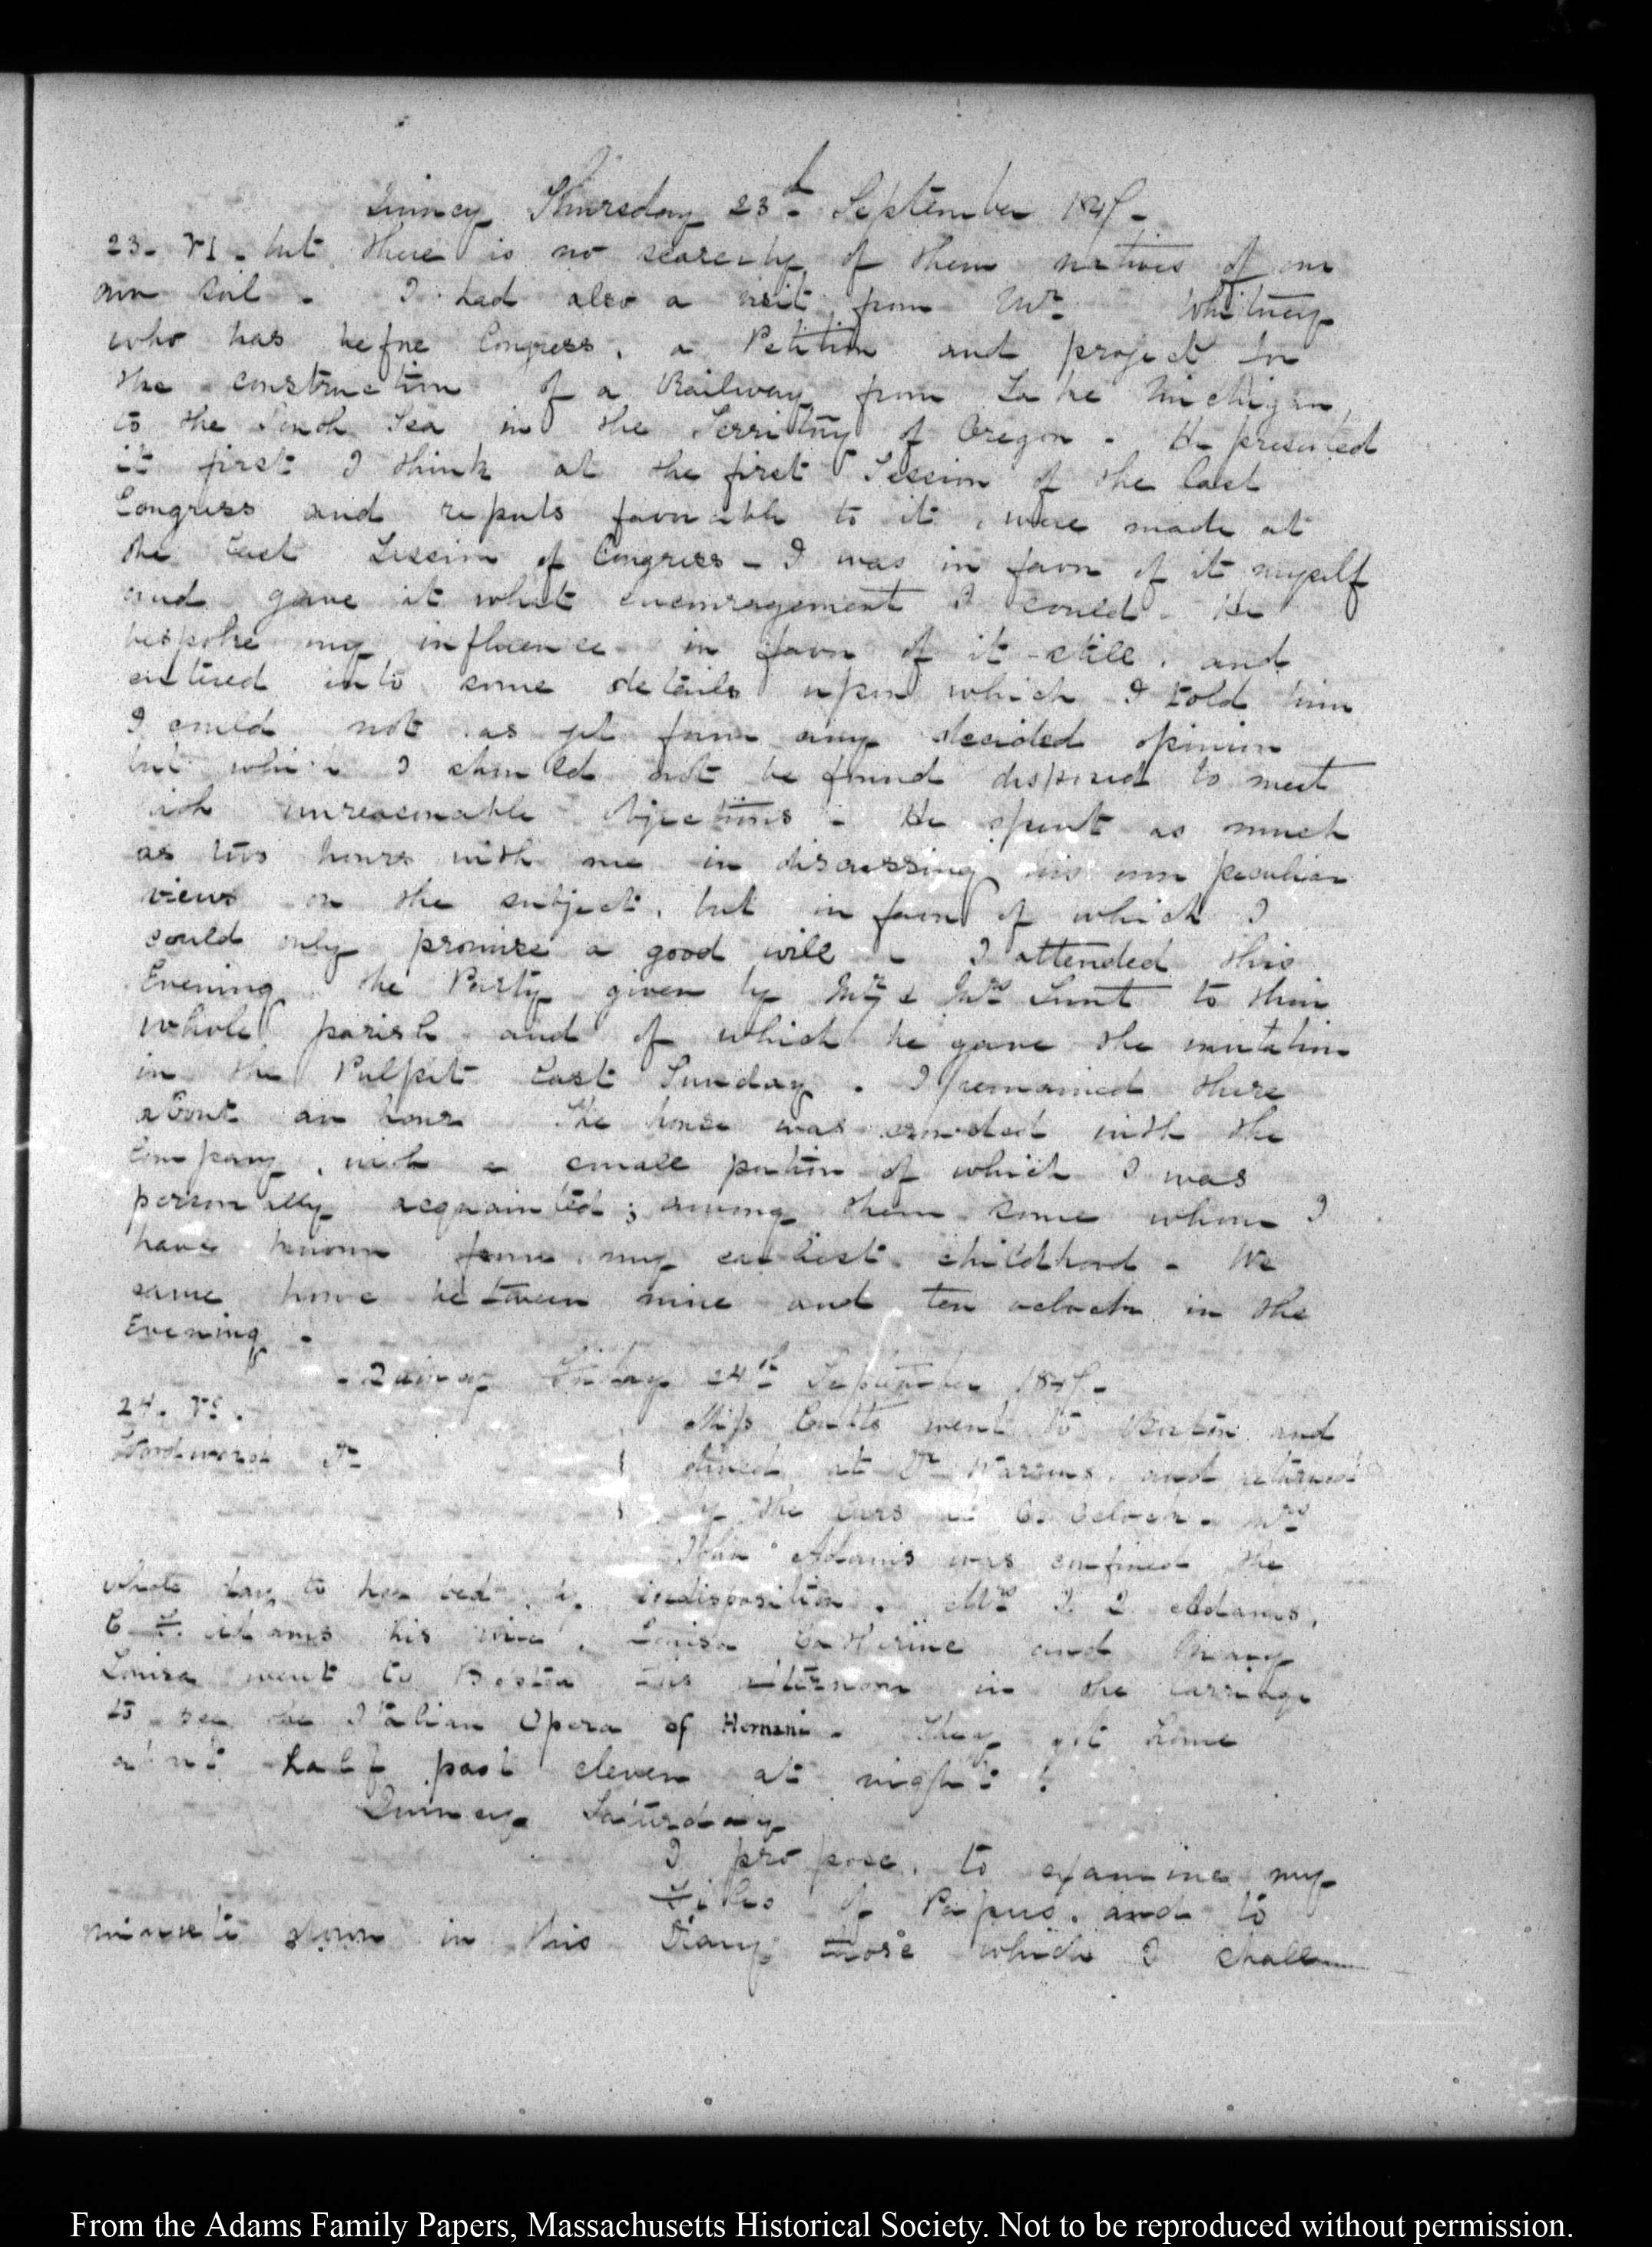 Quincy Thursday 23d. September 1847-
23. VI. but there is no scarcity of them natives of our
own soil - I had also a visit from Mr. Whitney
who has before Congress, a Petition and project for
the construction of a Railway from Lake Michigan,
to the South Sea in the Territory of Oregon - He presented
it first I think at the first Session of the last
Congress and reports favorable to it, were made at
the last Session of Congress - I was in favor of it myself
and gave it what encouragement I could - He
bespoke my influence in favor of it still, and
entered into some details upon which I told him
I could not as yet form any decided opinion
but which I should not be found disposed to meet
with unreasonable objections - He spent as much
as two hours with me in discussing his own peculiar
views on the subject, but in favor of which I
could only promise a good will - I attended this
Evening the Party given by Mr. & Mrs. Lunt to their
whole parish and of which he gave the invitation
in the Pulpit last Sunday. I remained there
about an hour The house was crowded with the
Company, with a small portion of which I was
personally acquainted; among them some whom I
have known from my earliest childhood - We
came home between nine and ten oclock in the
Evening -
- Quincy Friday 24th. September 1847-
24.
Miss Cutts went to Boston and
dined at Dr. Warren's, and returned
by the Cars at 6. Oclock - Mrs
John Adams was confined the
whole day to her bed, by indisposition. Mrs J. Q. Adams,
C. F. Adams his wife, Louisa Catherine and Mary
Louisa went to Boston this afternoon in the carriage
to see the Italian Opera of Hernani - They got home
about half past eleven at night.
Quincy Saturday
I propose, to examine my
Files of Papers, and to
minute down in this Diary those which I shall